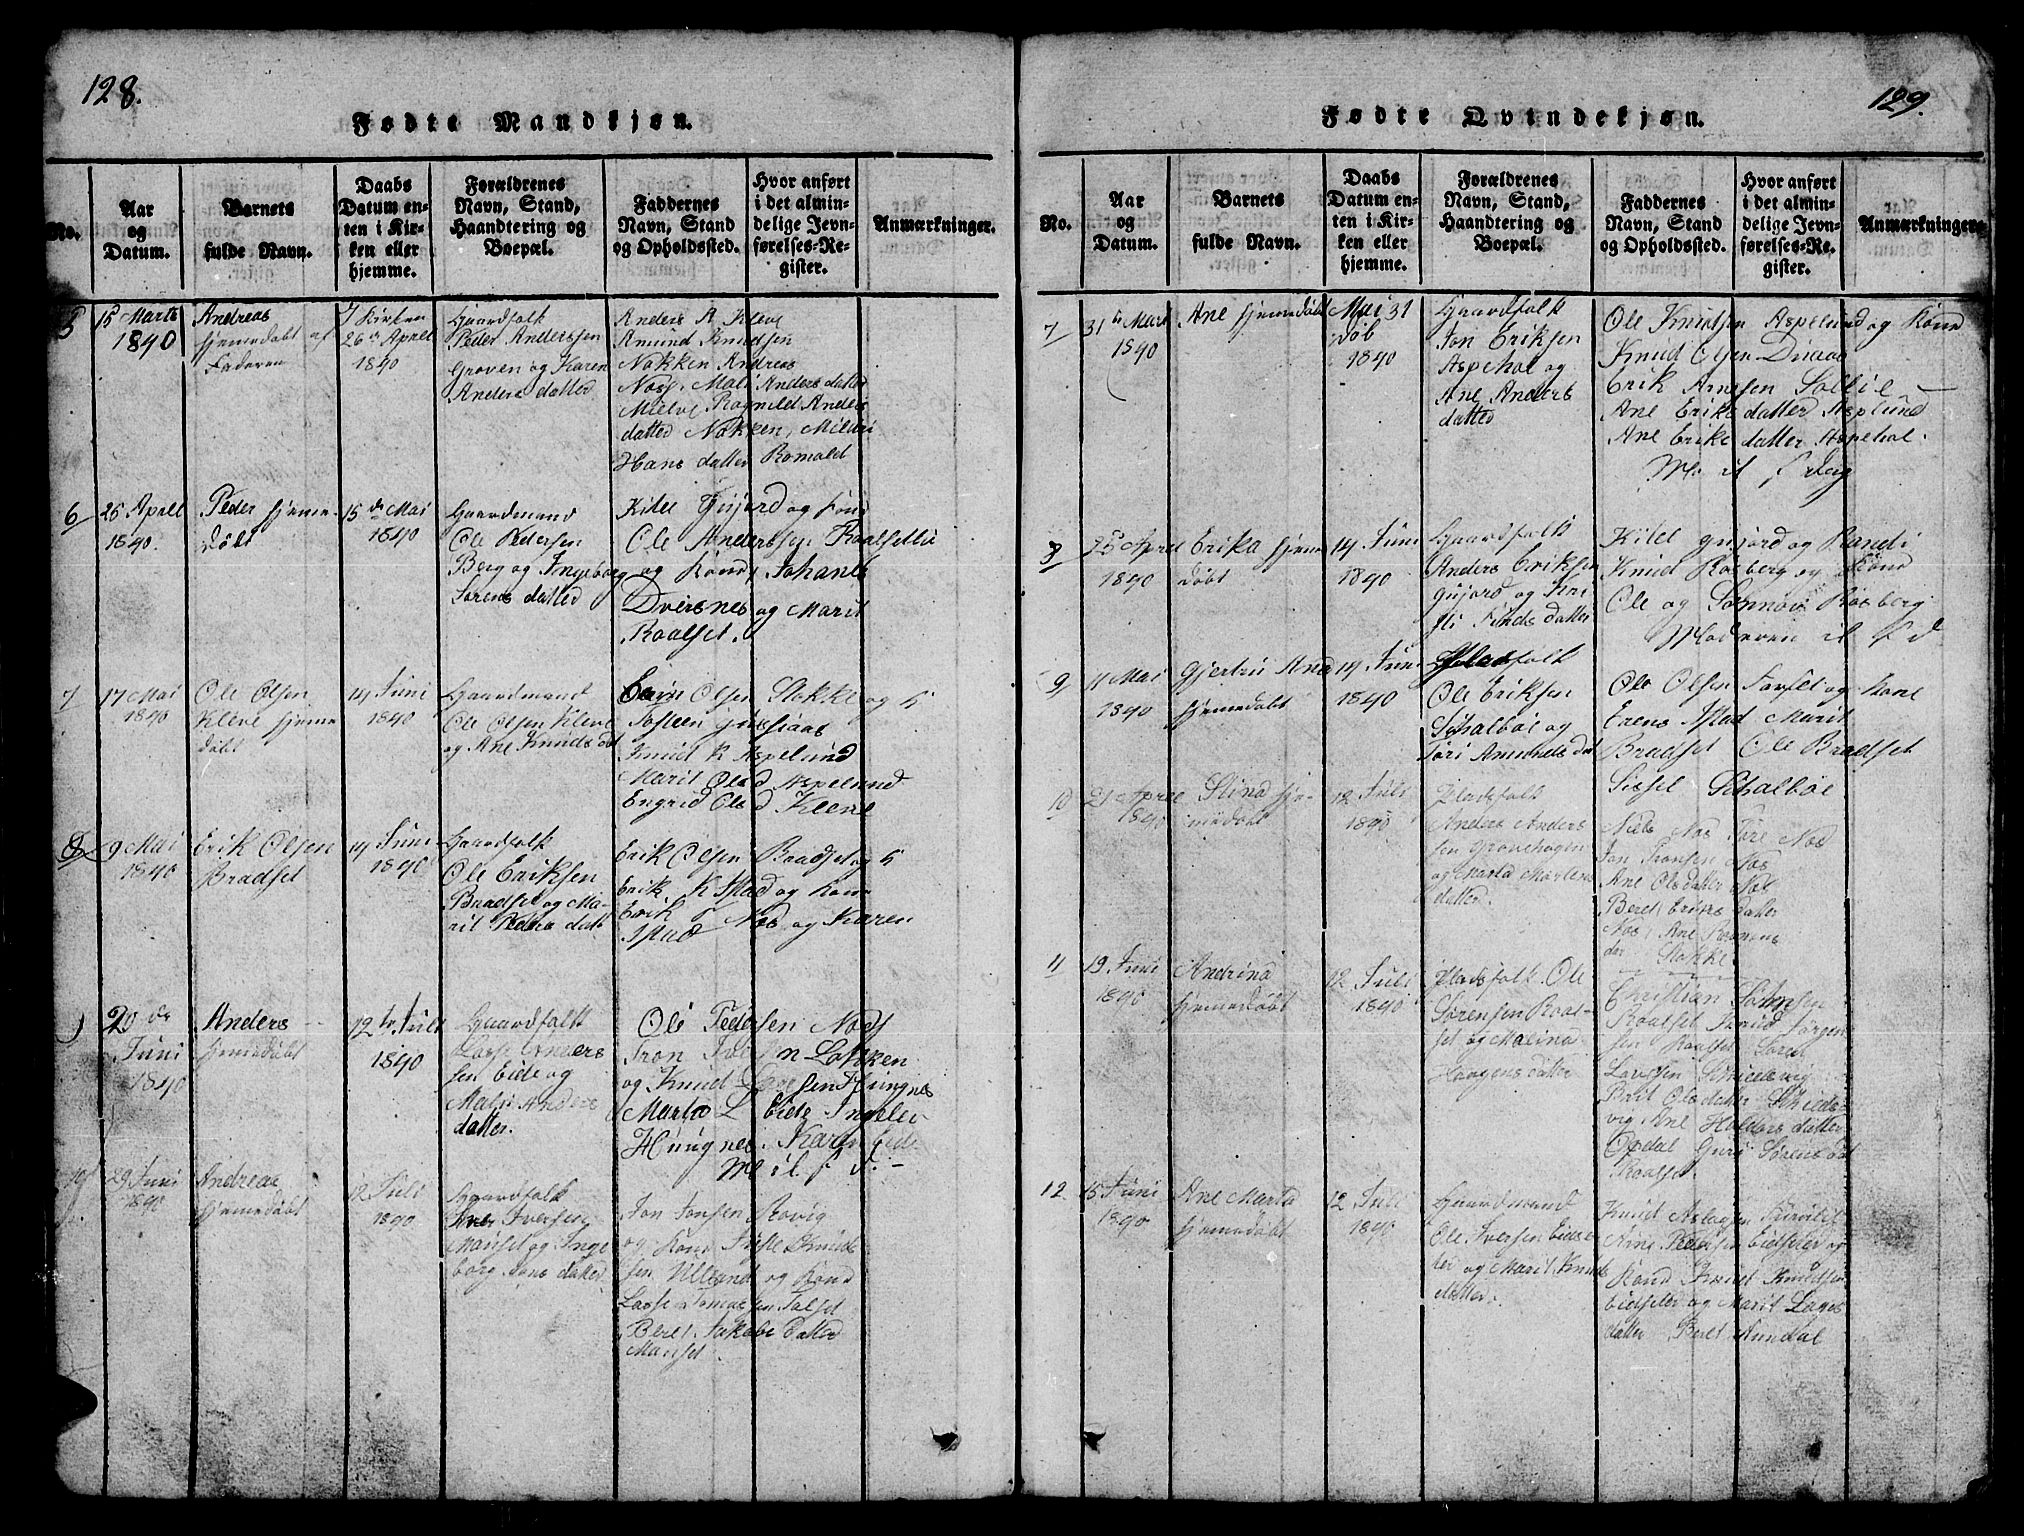 128.
Fødte Mandkjøn.
No.
Aar
og
Datum.
Barnets
fulde Navn.
Daabs
Datum en-
ten i Kir-
ken eller
hjemme.
Forældrenes
Navn, Stand,
Haandtering og
Boepæl.
Faddernes
Navn, Stand
og Opholdssted.
Hvor anført
i det almin-
delige Jevn-
førelses-Re-
gister.
Anmærkninger.
5
15 Marts
1840
Andreas
hjemedøbt af
Faderen
Kirken
26 Aprel
1840
Gaardfolk
Peder Anderssen
Groven og Karen
Anders datter
Anders A Kleve
Amund Knudsen
Nokken Andreas
Næss. Mali Anders datter
Mielve Ragnild Anders
datter Nokken, Mildri
Hans datter Romslet
6
26 Aprel
1840.
Peder hjeme-
døbt
15 de Mai
1840
Gaardmand
Ole Pedersen
Berg og Ingeborg
Sørens datter
Kitel Gujord og kond
Ole Anderssen Roalsetlie
og Kond, Johanes
Dversnes og Marit
Roalset.
7
17 Mai
1840
Ole Olsen
Kleve hjeme
døbt
14 Juni
1840
Gaardmand
Ole Olsen Kleve
og Ane Knuds dat
Olsen Stokke og
Knud K Aspelund
Marit Olsd Aspelund
Engrid Olsd Kleve
8
9 Mai
1840
Erik Olsen
Bradset
14 Juni
1840
Gaardfolk
Ole Eriksen
Bradset og Ma-
rit Peders datt
Erik Olsen Bradset og
Erik K Istad og kone
Erik Næs og Karen
Istad
20 de
Juni
1840
Anders
hjemedøbt
12 te Juli
1840
Gaardfolk
Lasse Anders
sen Eide og
Mali Anders
datter.
Ole Pedersen Næss
Tron Iversen Løkken
og Knud Larssen Hungnes
Marta L Eide Ingeler
Hungnes. Karen Eide
M il f d. -
10
29 Juni
1840
Andreas
hjemedøbt
12 Juli
1840
Gaardfolk
Iver Iversen
Manset og Inge
borg Jons datter
Jon Jonsen Rovig
og Kone Knuds
sen Ulland og Kond
Lasse Tomassen Talset
Beret Jakobs datter
Manset
129.
Fødte Qvindekjøn.
No.
Aar
og
Datum.
Barnets
fulde Navn.
Daabs
Datum en-
ten i Kir-
ken eller
hjemme.
Forældrenes
Navn, Stand,
Haandtering og
Boepæl.
Faddernes
Navn, Stand
og Opholdssted.
Hvor anført
i det almin-
delige Jevn-
førelses-Re-
gister.
Anmærkninger.
7
31 te Mart
1840
Ane hjemedøbt
Mai 31
døb
1840
Gaardfolk
Jon Eriksen
Aspehol og
Ane Anders
datter
Ole Knudsen Aspelund og Kond
Knud Olsen
Erik Arnesen Sollie
Ane Eriks datter Asplund
Ane Eriks datter Aspehol.
8
25 Aprel
1840
Erika hjeme
døbt
14 Juni
1840
Gaardfolk
Anders Eriksen
Gujord og Kri
sti Finds datter
Kitel Gujord og Randi
Knud Rosberg og Kond
Ole og Sønnøv Rosberg
Moderen il f d
9
11 Mai
1840
Gjertru Ana
hjemedøbt
14 Juni
1840
Pladsfolk
Ole Eriksen
Schalbøe og
Turi Amunds da
Ole Olsen Farset og Kone
Erens Istad Marit
Bradset Ole Bradset
Sissel Schalbøe
10
21 Aprel
1840
Stina hje-
medøbt
12 Juli
1840
Pladsfolk
Anders Anders
sen Grovehagen
og Marta Mortens
datter.
Niels Næs Tore Næs
Jon Tronsen Næs
Ane Olsdatter Næs
Beret Eriks datter
Næs, Ane Rasmus
der Stokke
11
19 Juni
1840
Andrina
hjemedøbt
12 Juli
1840
Pladsfolk. Ole
Sørensen Roal-
set og Malina
Haagens datter
Christian Sørensen
Roalset Knud Jørgen
sen Roalset Søren
Larssen Schiedsvig
Brit Olsdatter Schieds-
vig Ane Halders datter
Opdal Guri Sørens dat
Roalset
12
15 Juni
1840
Ane Marta
hjemedøbt
12 Juli
1840
Gaardmand
Ole Iversen Eidse
ter og Marit Knuds
datter.
Knud Aslagsen
Arne Pedersen Eidseter og
Kond Knud Knudsen
Eidseter og Marit Lages
datter Beret Aundal